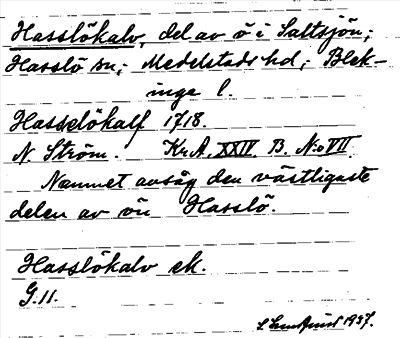 Hasslökalv, del av ö i Saltsjön,
Hasslö sn; Medelstads hd, Blek-
inge l.
Hasselökalf 1718.
N. Ström. Kr.A. XXIV. B. N:o VII.
Namnet avsåg den västligaste
delen av ön Hasslö.
Hasslökalv ek.
G. 11.
1937.